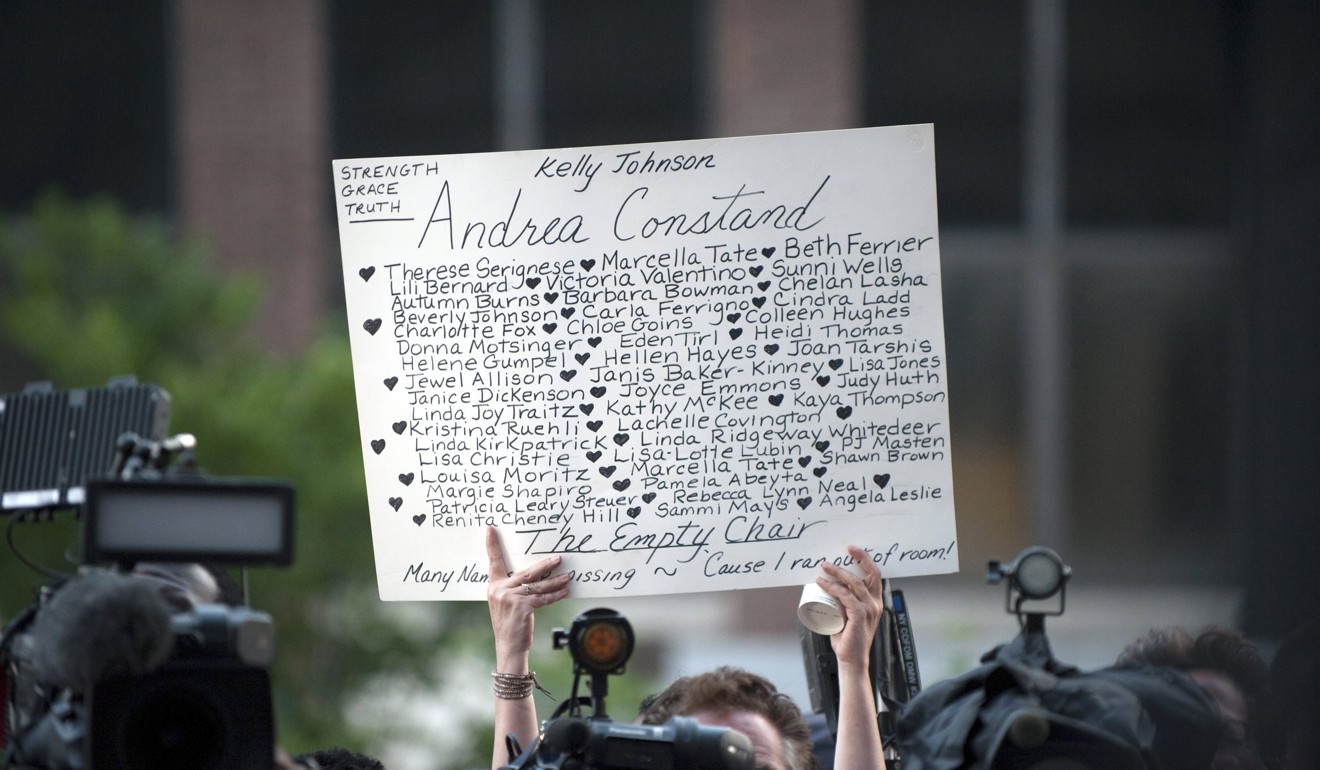 STRENGTH
GRACE
TRUTH
Kelly Johnson
Andrea Constand
♥ Therese Serignese ♥ Marcella Tate ♥ Beth Ferrier
Lili Bernard ♥ Victoria Valentino ♥ Sunni Wells
Autumn Burns ♥ Barbara Bowman ♥ Chelan Lasha
Beverly Johnson ♥ Carla Ferrigno ♥ Cindra Ladd
♥ Charlotte Fox ♥ Chloe Goins ♥ Colleen Hughes
Donna Motsinger ♥ Eden Tirl ♥ Heidi Thomas
Helene Gumpel ♥ Hellen Hayes ♥ Joan Tarshis
♥ Jewel Allison ♥ Janis Baker-Kinney ♥ Lisa Jones
Janice Dickenson ♥ Joyce Emmons ♥ Judy Huth
Linda Joy Traitz ♥ Kathy McKee ♥ Kaya Thompson
♥ Kristina Ruehli ♥ Lachelle Covington ♥
♥ Linda Kirkpatrick ♥ Linda Ridgeway Whitedeer
Lisa Christie ♥ Lisa-Lotte Lublin ♥ PJ Masten
♥ Louisa Moritz ♥ Marcella Tate ♥ Shawn Brown
Margie Shapiro ♥ Pamela Abeyta ♥
♥ Patricia Leary Steuer ♥ Rebecca Lynn Neal ♥
♥ Renita Cheney Hill ♥ Sammi Mays ♥ Angela Leslie
The Empty Chair
Many issing ~ 'Cause I ran out of room!